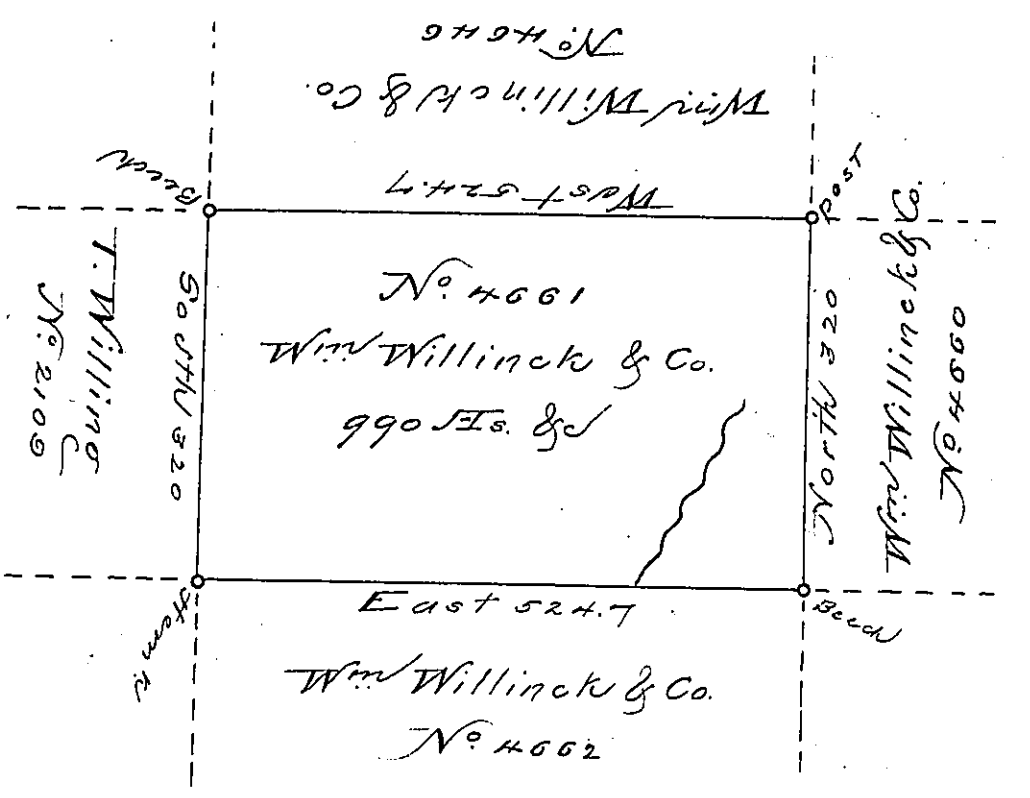 No 4646
Wm Willinck & Co.
West 524.7
Beech
Post
T. Willing
No 2109
South 320
No 4661
Wm Willinck & Co.
990 As. &c
North 320
Wm Willinck & Co.
No 4660
Hemk
East 524.7
Beech
Wm Willinck & Co.
No 4662